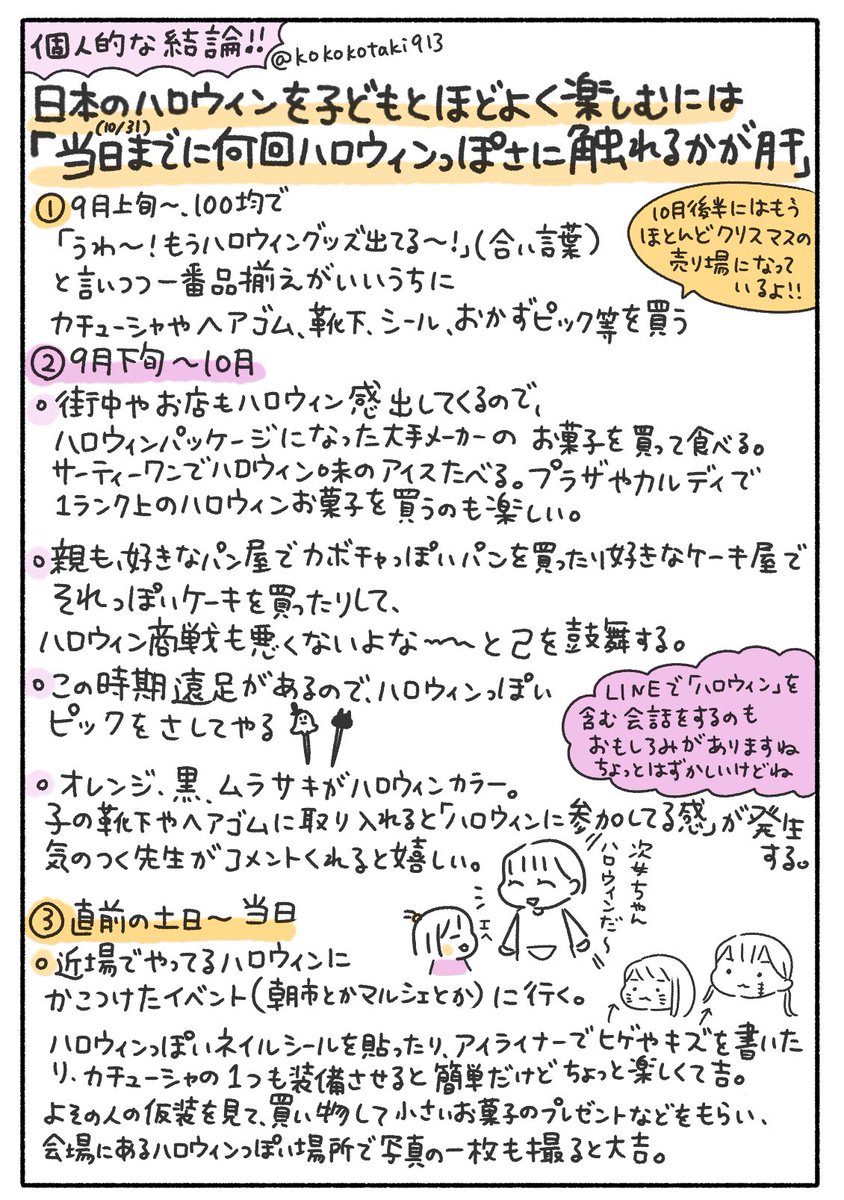 個人的な結論!!
@kokokotaki913
日本のハロウィンを子どもとほどよく楽しむには
(10/31)
「当日までに何回ハロウィンっぽさに触れるかが肝」
① 9月上旬〜、100均で
「うわ〜！もうハロウィングッズ出てる〜！」(合い言葉)
と言いつつ一番品揃えがいいうちに
カチューシャやヘアゴム、靴下、シール、おかずピック等を買う
10月後半にはもう
ほとんどクリスマスの
売り場になって
いるよ!!
② 9月下旬〜10月
街中やお店もハロウィン感出してくるので、
ハロウィンパッケージになった大手メーカーの お菓子を買って食べる。
サーティーワンでハロウィン味のアイスたべる。プラザやカルディで
1ランク上のハロウィンお菓子を買うのも楽しい。
親も、好きなパン屋でカボチャっぽいパンを買ったり好きなケーキ屋で
それっぽいケーキを買ったりして、
ハロウィン商戦も悪くないよな〜〜と己を鼓舞する。
この時期遠足があるので、ハロウィンっぽい
ピックをさしてやる
LINEで「ハロウィン」を
含む会話をするのも
おもしろみがありますね
ちょっとはずかしいけどね
オレンジ、黒、ムラサキがハロウィンカラー。
子の靴下やヘアゴムに取り入れると「ハロウィンに参加してる感」が発生
する。
気のつく先生がコメントくれると嬉しい。
次女ちゃん
ハロウィンだ〜
エヘ
③ 直前の土日〜当日
近場でやってるハロウィンに
かこつけたイベント(朝市とかマルシェとか)に行く。
ハロウィンっぽいネイルシールを貼ったり、アイライナーでヒゲやキズを書いた
り、カチューシャの1つも装備させると簡単だけどちょっと楽しくて吉。
よその人の仮装を見て、買い物して小さいお菓子のプレゼントなどをもらい、
会場にあるハロウィンっぽい場所で写真の一枚も撮ると大吉。